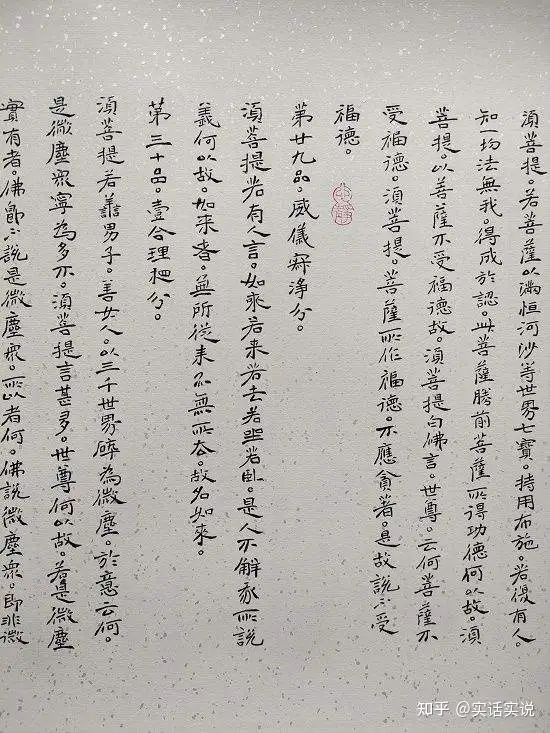 須菩提。若菩薩以滿恒河沙等世界七寶。持用布施。若復有人。
知一切法無我。得成於認。此菩薩勝前菩薩所得功德何以故。須
菩提。以菩薩不受福德故。須菩提白佛言。世尊。云何菩薩不
受福德。須菩提。菩薩所作福德。不應貪著。是故說不受
福德。
第廿九品。威儀寂淨分。
須菩提若有人言。如來若来若去若坐若卧。是人不解我所說
義何以故。如来者。無所從来亦無所去。故名如來。
第三十品。壹合理相分。
須菩提若善男子。善女人。以三千世界碎為微塵。於意云何。
是微塵眾寧為多不。須菩提言甚多。世尊何以故。若是微塵
實有者。佛即不說是微塵眾。所以者何。佛說微塵眾。即非微
知乎 @实话实说